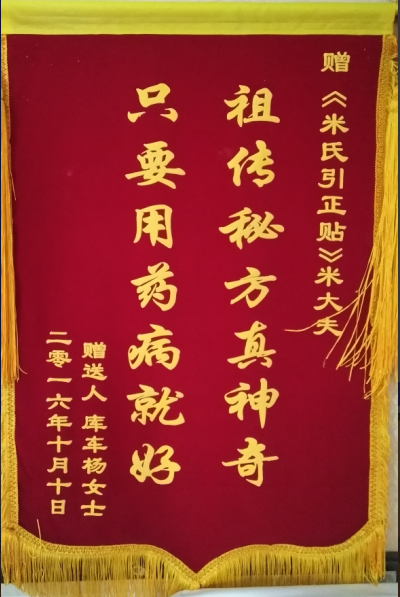 赠《米氏引正贴》米大夫
祖传秘方真神奇
只要用药病就好
赠送人 库车杨女士
二零一六年十月十日